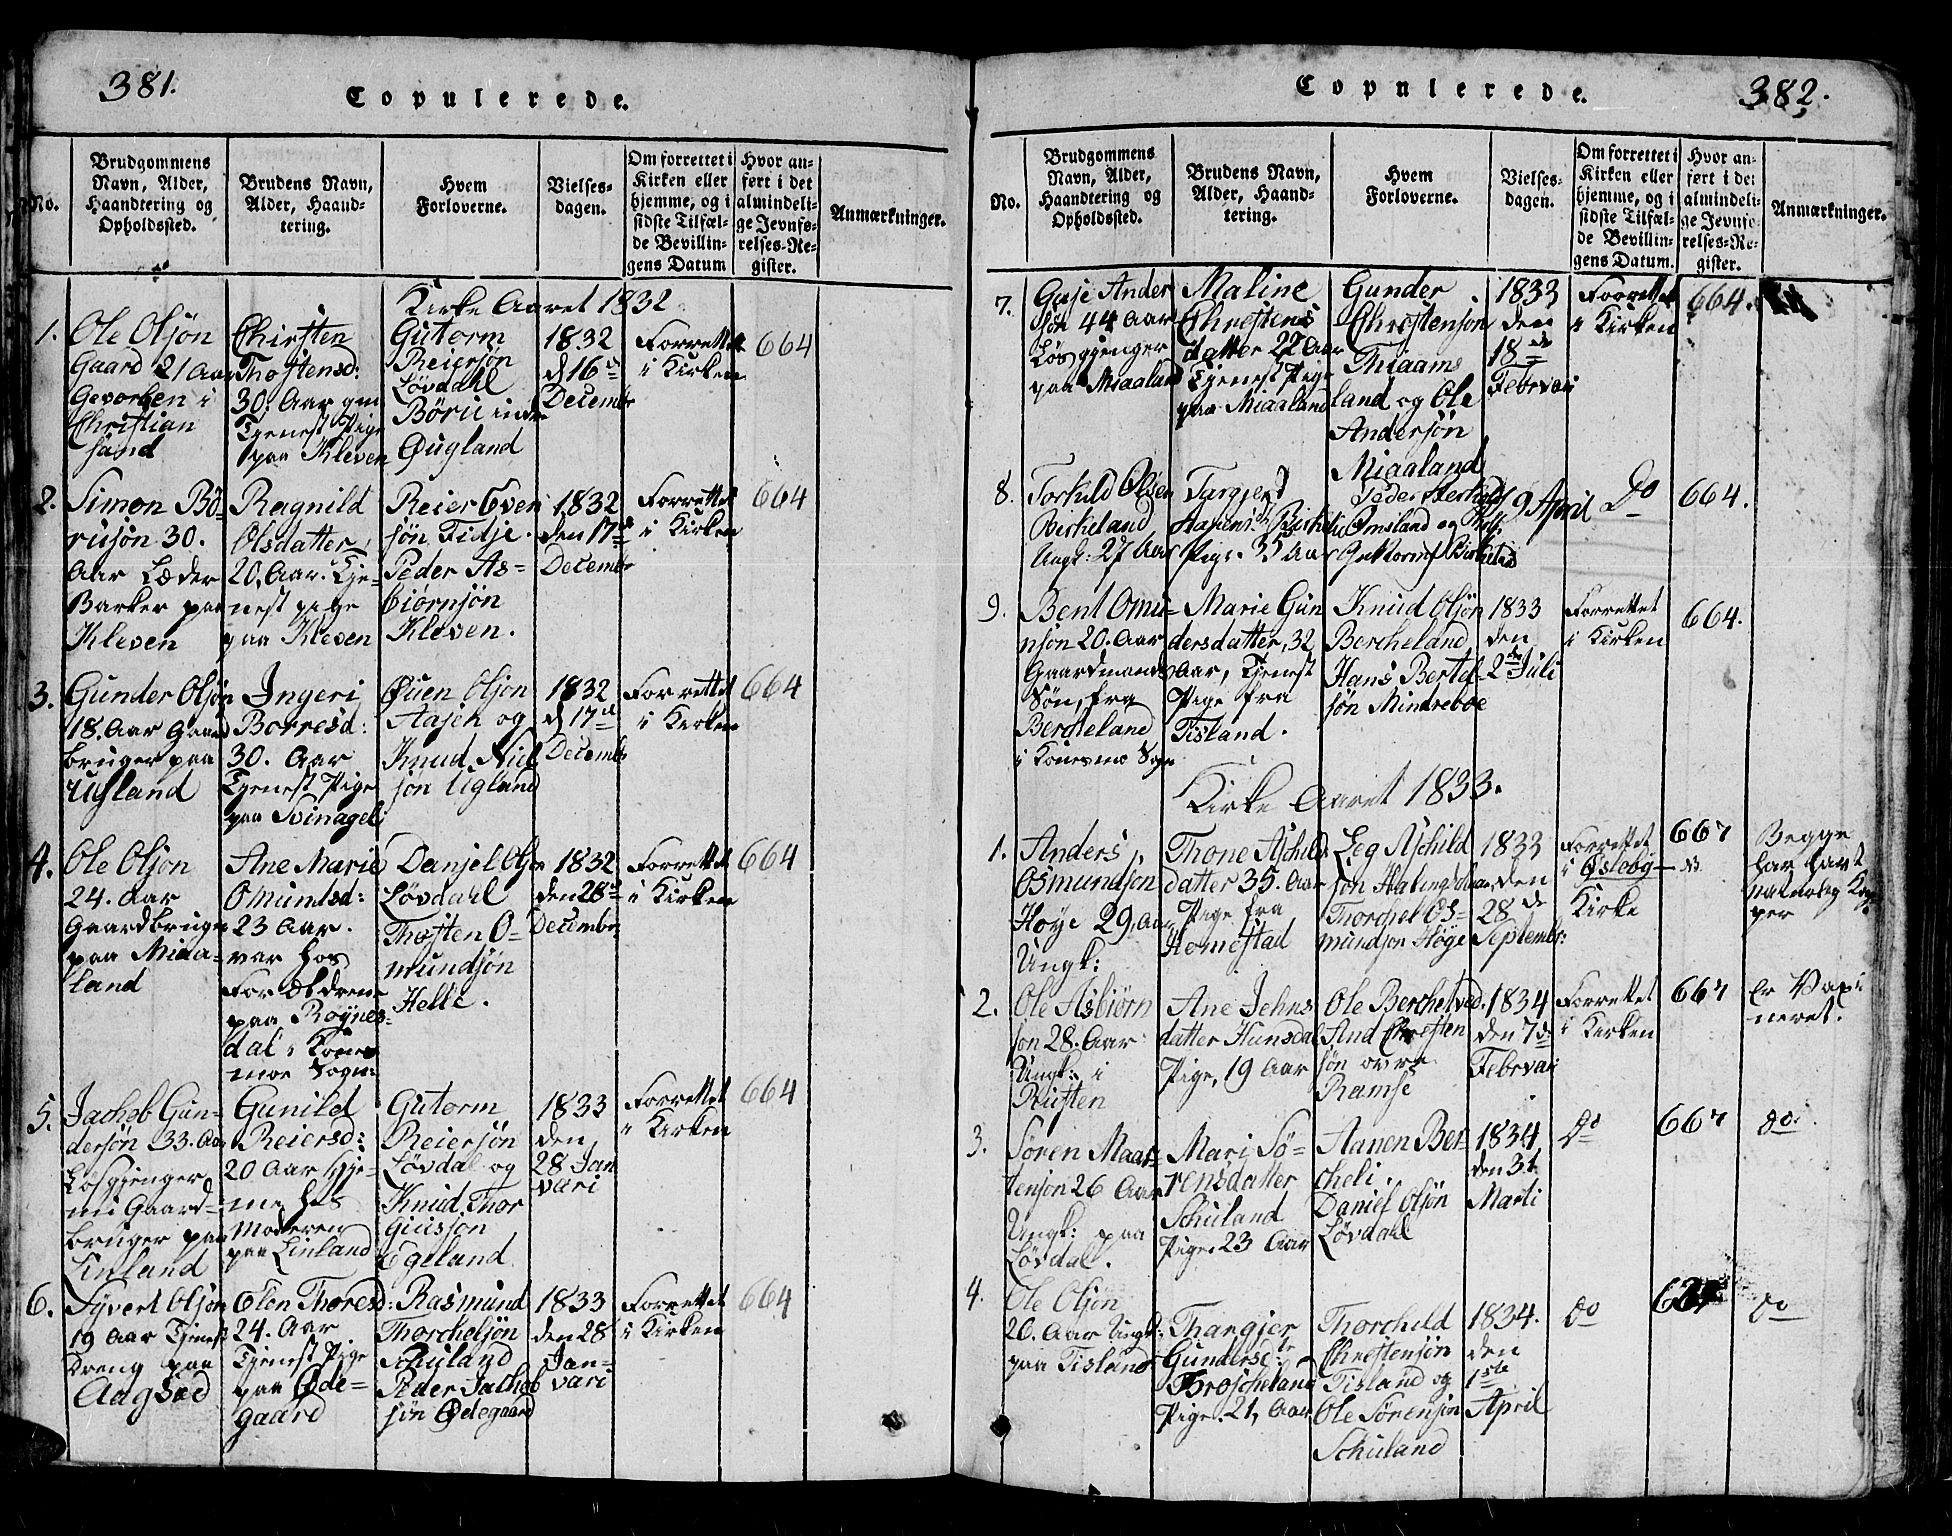 381.
Copulerede.
No.
Brudgommens
Navn, Alder,
Haandtering og
Opholdssted.
Brudens Navn,
Alder, Haand-
tering.
Hvem
Forloverne.
Vielses-
dagen.
Om forrettet i
Kirken eller
hjemme, og i
sidste Tilfæl-
de Bevillin-
gens Datum
Hvor an-
ført i det
almindeli-
ge Jevnfø-
relses-Re-
gister.
Anmærkninger.
Kirke Aaret 1832
1.
Ole Olsøn
Gaard 21 Aar
i
Christian
sand
Chirsten
Thostensd:
30. Aar
Tjenest Pige
paa Kleven
Gutorm
Reiersøn
Løvdahl
Øugland
1832
d 16de
Decembr
Forrettet
i Kirken
664
2.
Simon Bö-
risøn 30.
Aar Læder
Barker paa
Kleven
Ragnild
Olsdatter,
20, Aar. Tje-
nest pige
paa Kleven
Reier Even
søn Fidje.
Peder As-
biörnsøn
Kleven.
1832
den 17de
Decembr
Forrettet
i Kirken
664
3.
Gunder Olsøn
18. Aar Gaard
bruger paa
Ugland
Ingeri
Borresd:
30. Aar
Tjenest Pige
paa Svinagel
Øuen Olson
og
Knud Niel
søn Ugland
1832
d 17de
Decembr
Forrettet
i Kirken
664
4.
Ole Olson
24. Aar
Gaardbruger
paa Miaa-
land
Ane Marie
Omundsd:
23 Aar.
var hos
Forældrene
paa Røynes-
dal i Kones
moe Sogn:
Danjel Olson
Løvdahl
Thosten O-
mundsøn
Helle.
1832
den 28de
Decembr
Forrettet
i Kirken
664
5.
Jachob Gun-
dersøn 33. Aar
Losgjenger
nu Gaard-
bruger paa
Linland
Gunild
Reiersd:
20 Aar Hje-
me hos
Moderen
paa Linland
Gutorm
Reiersøn
Løvdal og
Knud Thor
giusson
Egeland
1833
den
28 Jan
vari
Forrettet
i Kirken
664
6.
Syvert Olsøn
19 Aar Tjenest
Dreng paa
Aagsæd
Elen Thoresd:
24. Aar
Tjenest Pige
paa Øde-
gaard
Rasmund
Thorchelsøn
Schuland
Peder Jachob
søn Ødegaard
1833
den 28
Jan-
vari
Forrettet
i Kirken
664
382.
Copulerede.
No.
Brudgommens
Navn, Alder,
Haandtering og
Opholdssted.
Brudens Navn,
Alder, Haand-
tering.
Hvem
Forloverne.
Vielses-
dagen.
Om forrettet i
Kirken eller
hjemme, og i
sidste Tilfæl-
de Bevillin-
gens Datum.
Hvor an-
ført i det
almindeli-
ge Jevnfø-
relses-Re-
gister.
Anmærkninger.
7.
Guje Ander
søn 44 Aar
Løsgjenger
paa Miaaland
Maline
Chrestens
datter 22 Aar
Tjenest Pige
paa Miaaland
Gunder
Chrestensøn
Thiaams
land og Ole
Andersøn
Miaaland
1833
den
18de
Febrvari
Forrettet
i Kirken
664.
8.
Torkild Olsen
Berkeland
Ungk: 27 Aar
Targjerd
Pige. 35 Aar
Peder
Omsland og
19 April
Do
664.
9.
Bent Omu-
nsøn 20. Aar
Gaardmands
Søn, fra
Bercheland
i Konesmo Sogn
Marie Gun
dersdatter, 32
Aar, Tjenest
Pige fra
Tisland.
Knud Olsøn
Bercheland
Hans Bertel-
søn Mindreboe
1833
den
2den Juli
Forrettet
i Kirken
664.
Kirke Aaret 1833.
1.
Anders
Osmundson
Høye 29, Aar
Ungk:
Thone Aschilds
datter 35. Aar
Pige fra
Homestad
Leg Aschild
søn
Thorchel Os-
mundson Høye
1833
den
28de
Septembr:
Forrettet
i Øslebg
Kirke
667
Begge
har havt
naturlig Kop
per
2.
Ole Asbiørn
son 28. Aar
Ungk: i
Rusten
Ane Jehns
datter Hunsdal
Pige, 19 Aar
Ole
And Chresten
søn øvre
Ramse
1834
den 7de
Febrvari
Forrettet
i Kirken
667
er Vaxi
neret.
3.
Søren Maar-
tensøn 26 Aar
Ungk: paa
Løvdal.
Mari Sö-
rensdatter
Schuland
Pige. 23 Aar
Aanen Ber-
cheli.
Daniel Olsøn
Løvdahl
1834
den 31
Marti
Do
667
do.
4.
Ole Olson
26. Aar Ungk:
paa Tisland
Thangjer
Gundersd:
Broscheland
Pige. 21, Aar
Thorchild
Chrestensøn
Tisland og
Ole Sørensøn
Schuland
1834.
den
1ste
April
do
do